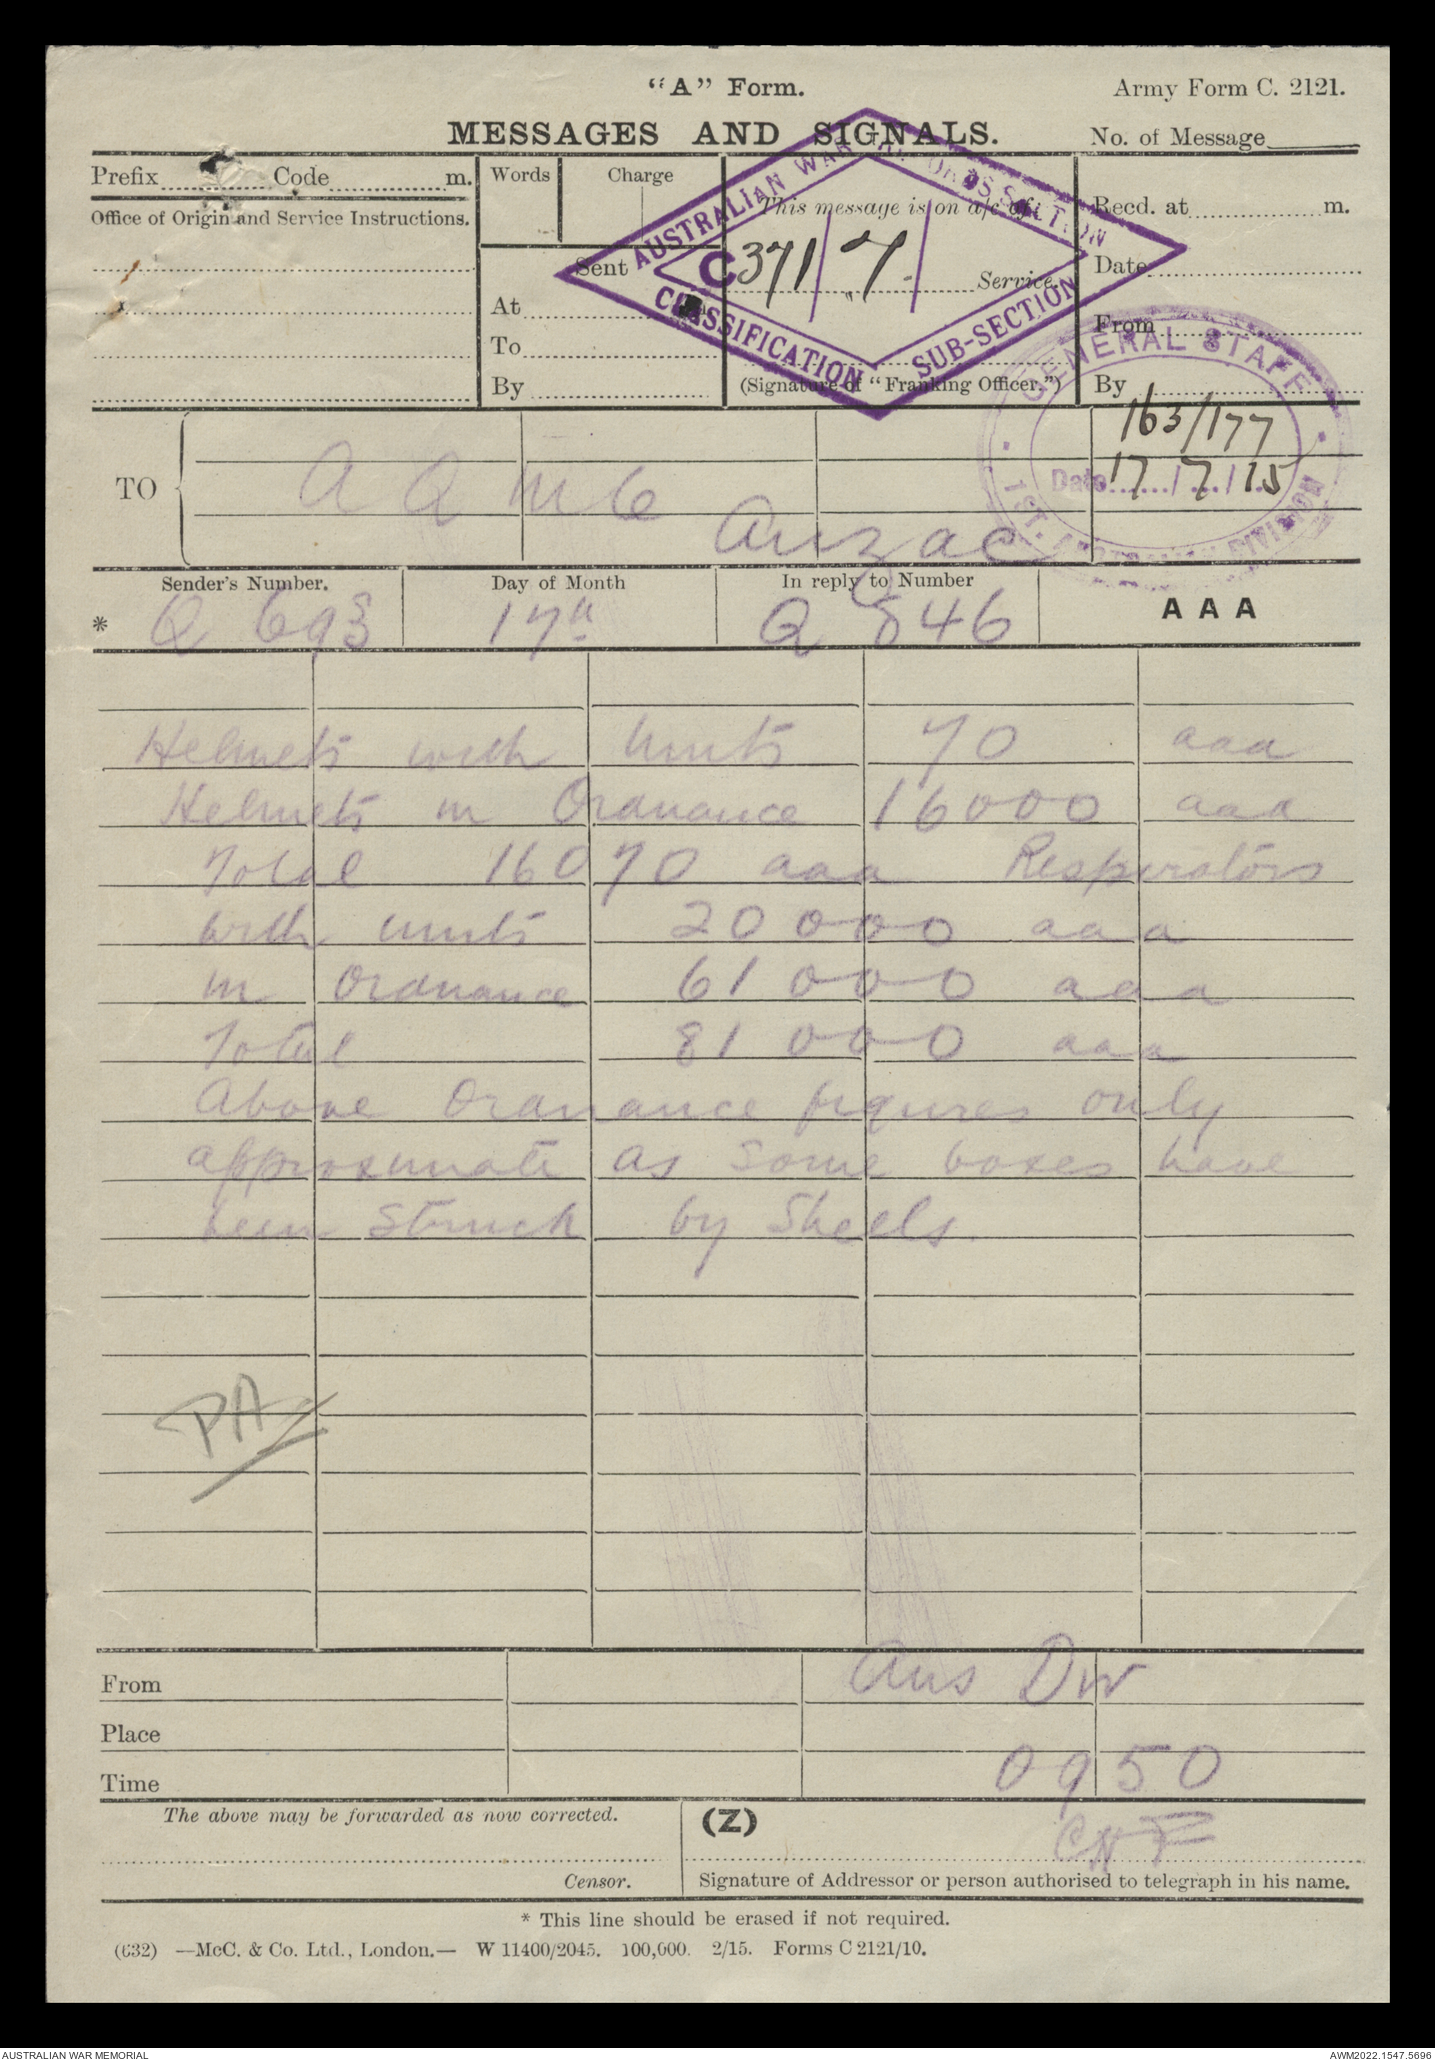 "A" Form.
Army Form C. 2121.
MESSAGES AND SIGNALS.
No. of Message
Prefix Code m.
Words Charge
This message is on a/c of:
Recd. at m.
Office of Origin and Service Instructions.
Sent
Service.
Date
At
From
To
By
(Signature of "Franking Officer.")
By
AUSTRALIAN WAR RECORDS SECTION
C 371/7
CLASSIFICATION SUB-SECTION
GENERAL STAFF
163/177
Date 17/7/15
1ST. AUSTRALIAN DIVISION
TO
A Q M C
Anzac
Sender's Number. Day of Month In reply to Number
* Q 693 17th Q 846 AAA
Helmets with units 70 aaa
Helmets in Ordnance 16000 aaa
Total 16070 aaa Respirators
with units 20000 aaa
in Ordnance 61000 aaa
Total 81000 aaa
Above Ordnance figures only
approximate as some boxes have
been struck by Shells.
PA
From Aus Div
Place
Time 0950
The above may be forwarded as now corrected.
(Z)
Censor.
Signature of Addressor or person authorised to telegraph in his name.
* This line should be erased if not required.
(632) —McC. & Co. Ltd., London.— W 11400/2045. 100,000. 2/15. Forms C 2121/10.
AUSTRALIAN WAR MEMORIAL
AWM2022.1547.5696